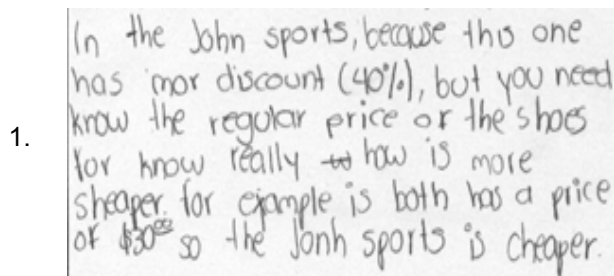 In the John sports, because this one
has mor discount (40%), but you need
1. know the regular price of the shoes
for know really how is more
sheaper. for ejample is both has a price
of $30⁰⁰ so the Jonh sports is cheaper.